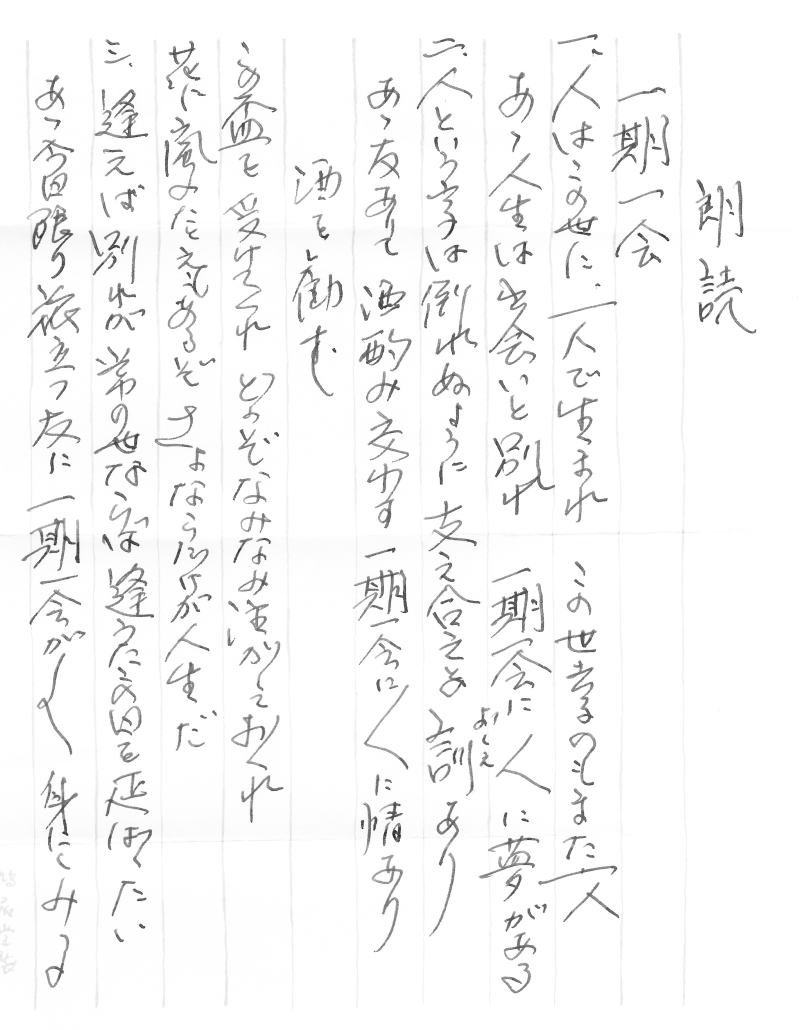 朗読
一期一会
一、人はこの世に、一人で生まれ この世去るのもまた一人
あゝ人生は出会いと別れ 一期一会に人に夢がある
二、人という字は倒れぬように 支え合えよ訓あり
おしえ
あゝ友ありて 酒酌み交わす 一期一会に人に情あり
酒を勧む
この盃を受けてくれ どうぞなみなみ注がしておくれ
花に嵐のたとえもあるぞ さよならだけが人生だ
三、逢えば別れが常の世ならば 逢うたこの日を延ばしたい
あゝ今日限り旅立つ友に 一期一会が 身にしみる